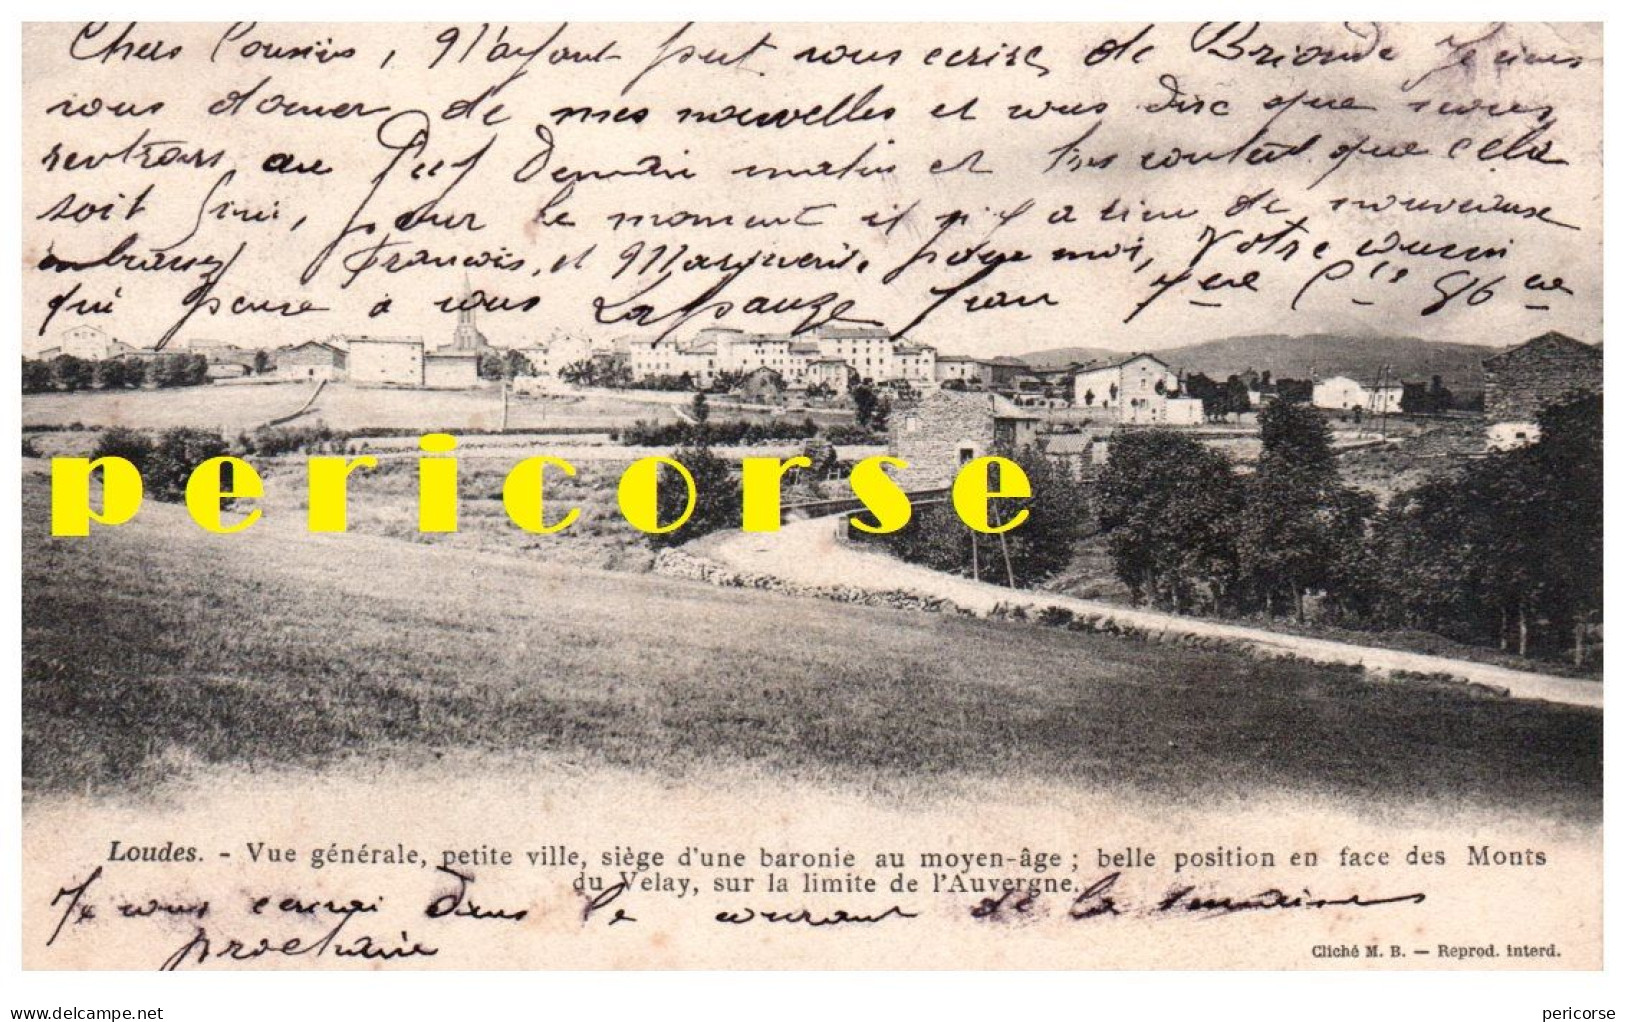 Chers Cousins, N'ayant put vous ecrire de Brioude Je viens
vous donner de mes nouvelles et vous dire que nous
rentrons au Puy Demain matin et très content que cela
soit fini, pour le moment il n'y a rien de nouveau
embrassez François, et Marguerite pour moi, Votre cousin
qui pense à vous Lapauze Jean 7me Cie 86me
pericorse
Loudes. - Vue générale, petite ville, siège d'une baronie au moyen-âge ; belle position en face des Monts
du Velay, sur la limite de l'Auvergne.
Je vous ecrirai dans le courant de la semaine
prochaine
Cliché M. B. — Reprod. interd.
www.delcampe.net
pericorse